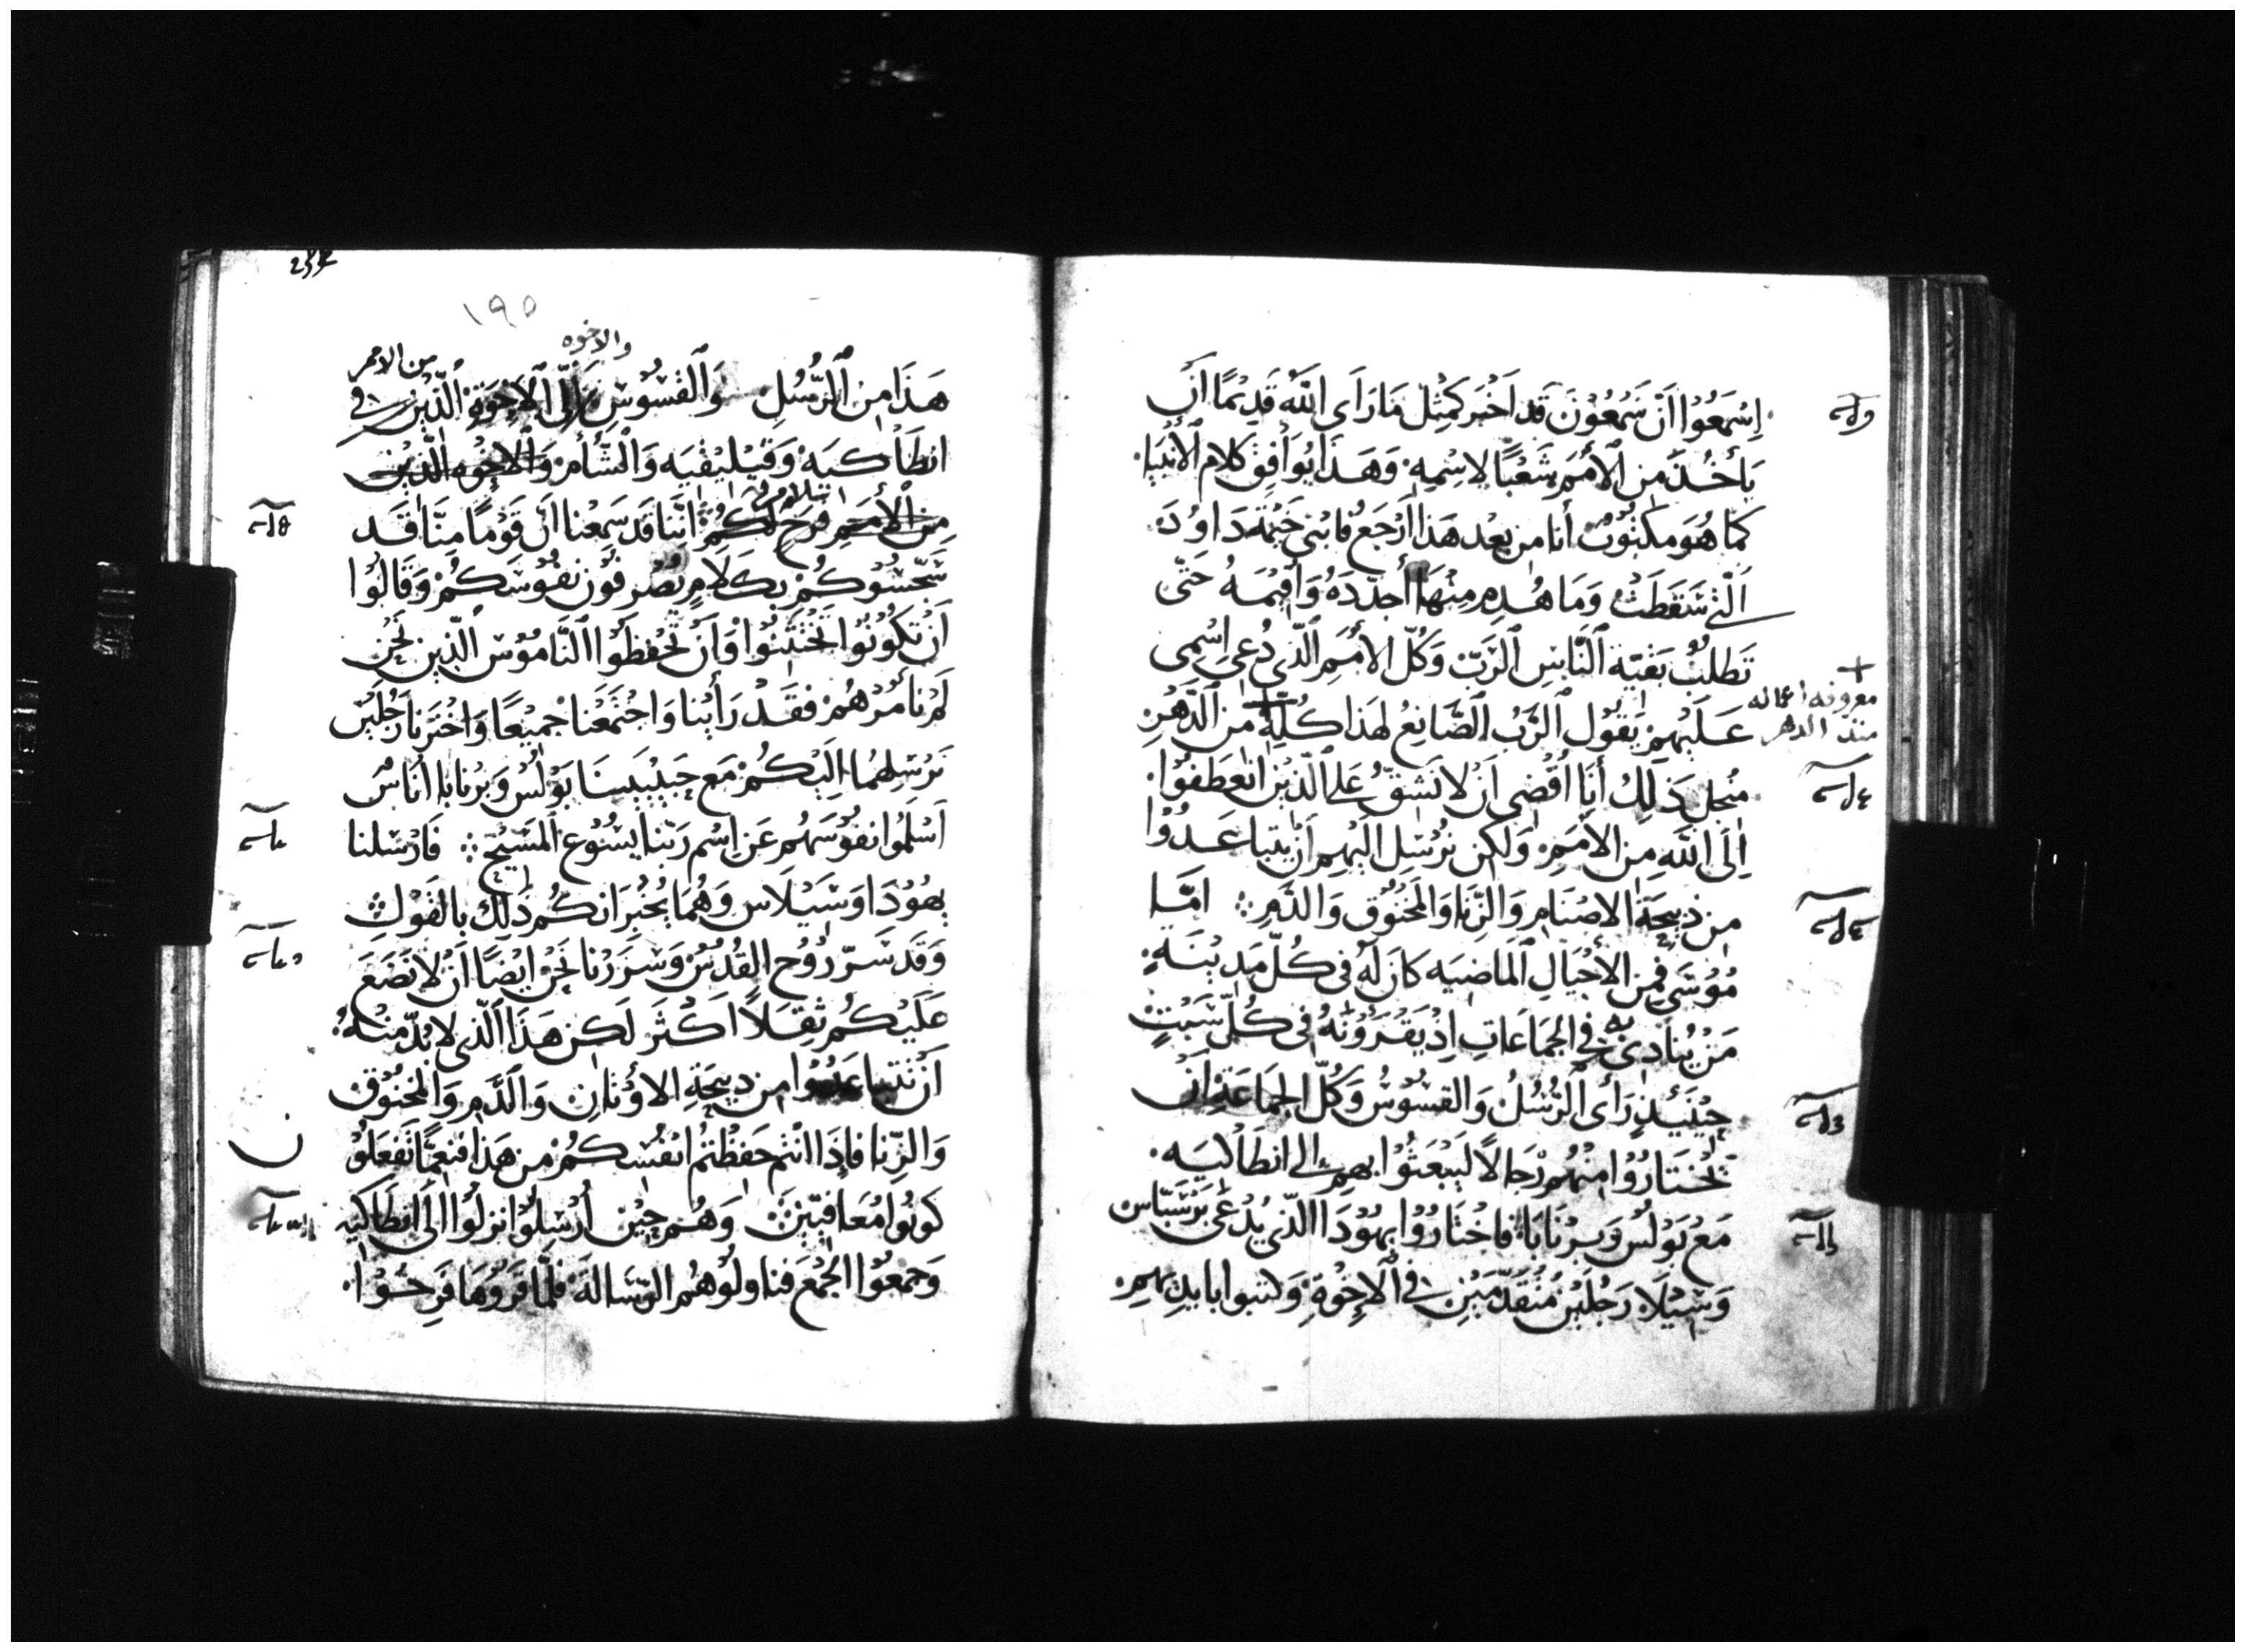 اِسْمَعُوْا اَنَّ سَمْعُوْنَ قَد اَخْبَر كَمِثْل مَا رَاَى اللّٰه قَدِيْمًا اَنْ
يَأخُذَ مِن الأُمَمِ شَعْبًا لِاسْمِهِ وَهَذَا يُوَافِقُ كَلام الأَنْبِيَا
كَمَا هُوَ مَكْتُوْبٌ أنا مِن بَعْد هَذَا اَرْجَعُ فَابْنى خَيْمَةَ دَاوُدَ
الَّتى سَقَطَتْ وَمَا هُدِمِ مِنْهَا اُجَدّدَهُ وَاُقِيْمَهُ حَتّى
تَطلُبُ بَقيّة النَّاسِ الرَّبّ وَكُلّ الأُمَمِ الَّذي دُعِي اِسْمِى
عَلَيْهِمْ يَقُوْل الرَّبُ الصَّانِعُ لهَذا كُلِّهِ مِن الدَّهْرِ
معروفه اعماله
منذ الدهر
مِنْجل ذَلِكَ أَنَا اَقْضِي اَنْ لا نَشُقّ عَلى الَّذيْن انْعَطَفُوْا
اِلَى اللّٰهِ مِن الأُمَمِ وَلَكِن نُرْسِل الَيْهِمِ اَنْ يتباعَدُوْا
مِن ذبِيحَةِ الاصْنَامِ وَالزّنَا وَالمَخْنُوْق وَالدَّمِ امّا
مُوْسَى فَمِن الأَجْيَالِ المَاضِيَه كَانَ لَهُ فى كُلّ مَدِيْنَةٍ
مَنْ يُنَادى بِه فى الجَمَاعَاتِ اِذ يَقْرَؤنَهُ فى كُلّ سَبْتٍ
حِيْنَيْذٍ رَأى الرُّسُلُ وَالقسُوْسُ وَكُلّ الجَمَاعَة اَنْ
يَخْتَارُوْا مِنْهُم رِجَالاً لِيَبْعَثُوْا بِهِم الى انطَاكيَه
مَعْ بَوْلُس وَبرْنَابَا فَاخْتَارُوْا يهُوْدَا الَّذى يُدْعَى بَرْسَبّاس
وَشِيْلَا رَجُلَيْن مُتقَدِّمَيْنِ فى الإِخْوَةِ وَكتَبوا بايديهِم
١٩٥
والاخوه
من الامم
هَذَا مِن الرُّسُلِ وَالْقسُوْسِ اِلَى الاخْوَةِ الَّذيْن فى
انطَاكيَه وَقيْلِيْقيَه وَالشَّأم وَالاخْوَه الَّذيْن
سلام
مِن الأُمَمِ فَرَح لَكُمْ اِنّنَا قَد سَمِعْنا اَنّ قَوْمًا مِنَّا قَد
سَجّسُوْكُمْ بِكَلَامٍ يُصْرِفُوْن نفُوْسَكُمْ وَقَالُوْا
اَنْ تكُوْنُوْا تَخْتَتِنُوْا وَاَنْ تَحْفظُوْا النَّامُوْس الَّذِين نَحْن
لَمْ نأمُرْهُمْ فَقَدْ رَأيْنا وَاجْتَمَعْنا جَميْعًا وَاخْتَرنا رَجُلَيْن
نَرْسِلهُمَا الَيْكُمْ مَع حَبِيْبَيْنا بَوْلُس وَبرْنابا اُنَاسٌ
اَسْلَمُوا نفُوْسَهُم عَن اِسْم رَبّنا يَسُوْع المَسِيْح فَارْسَلنا
يهُوْدَا وَشَيْلَاس وَهُمَا يُخْبِرَانكُم ذَلِكَ بالقَوْلِ
وَقَد سَرّ رُوْح القُدُسْ وَسَرَرْنا نَحْن ايْضًا اَنْ لا نَضَع
عَلَيْكُم ثِقَلاً اَكْثَر لَكِن هَذَا الَّذى لا بُدّ مِنْهُ
اَنْ تتباعَدُوا مِن ذبيحَةِ الاوْثانِ وَالدَّمِ وَالمَخْنُوْق
وَالزّنا فإِذَا انْتم حَفظْتُم انفُسكُمْ مِن هَذا فَنِعمّا تَفْعَلُوْن
كوْنُوا مُعَافِيْن وَهُم حِيْن اُرْسِلوْا نزلُوْا الى انطَاكيَه
وَجَمعُوْا الجَمْعَ فناولُوْهُمُ الرّسَالَة فَلمَّا قَرَوُهَا فَرِحُوْا